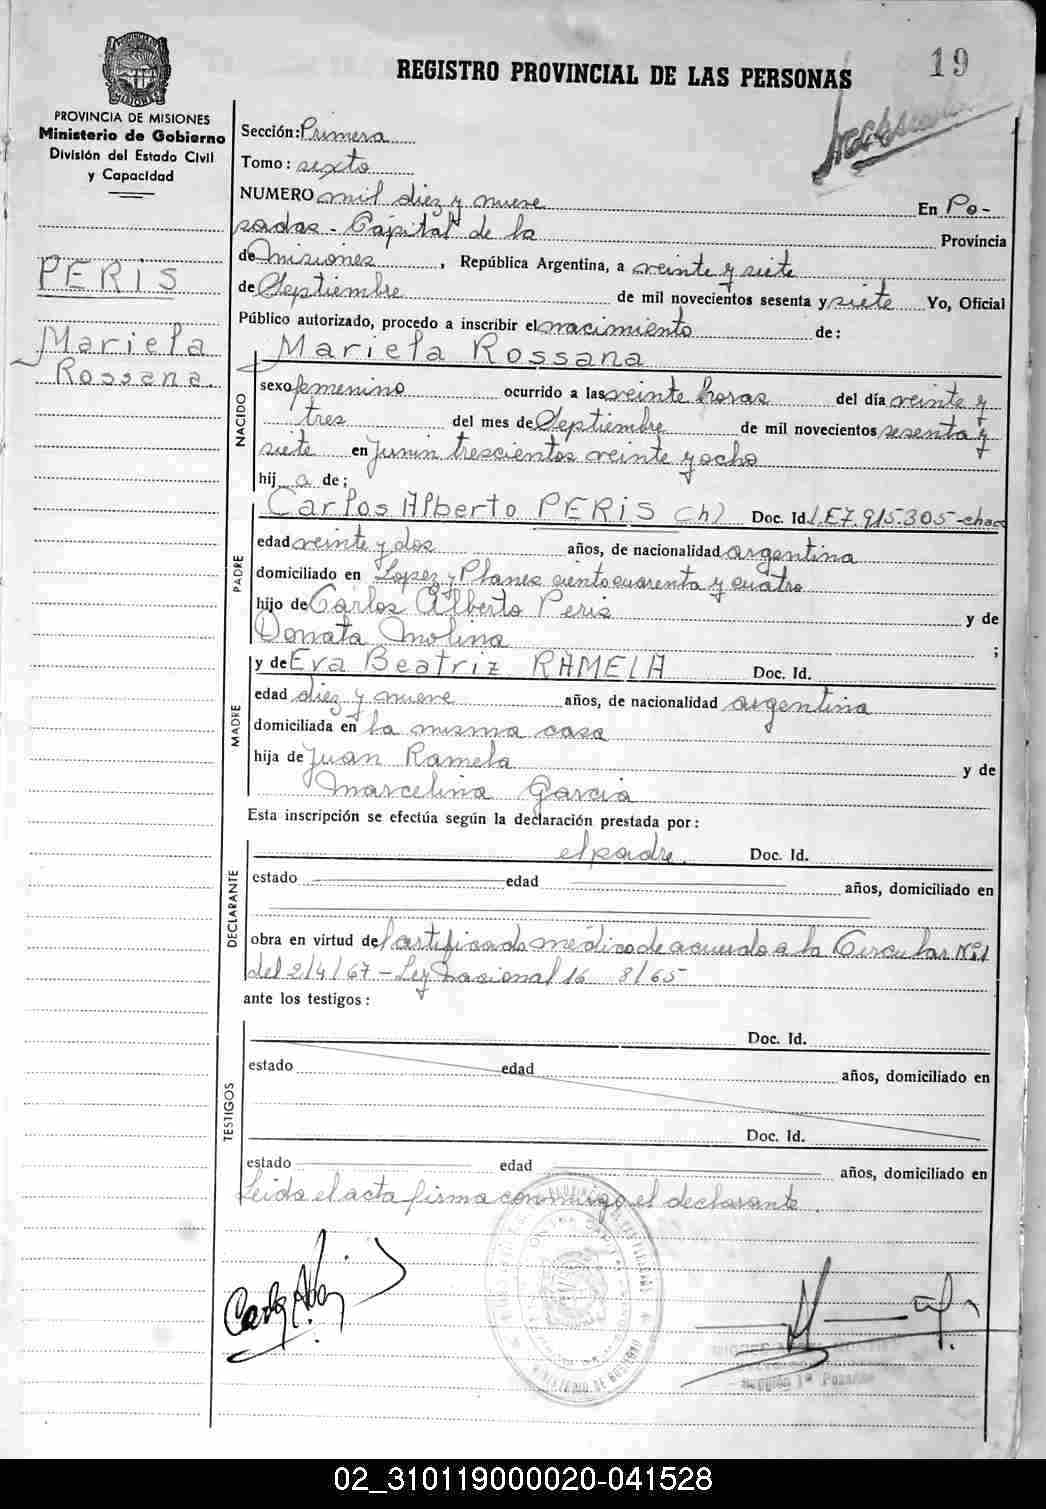 REGISTRO PROVINCIAL DE LAS PERSONAS
19
PROVINCIA DE MISIONES
Ministerio de Gobierno
División del Estado Civil
y Capacidad
PERIS
Mariela
Rossana
Sección: Primera
Tomo: sexto
NUMERO mil diez y nueve En Po-
sadas - Capital de la Provincia
de Misiones, República Argentina, a veinte y siete
de Septiembre de mil novecientos sesenta y siete Yo, Oficial
Público autorizado, procedo a inscribir el nacimiento de:
NACIDO
Mariela Rossana
sexo femenino ocurrido a las veinte horas del día veinte y
tres del mes de Septiembre de mil novecientos sesenta y
siete en Junín trescientos veinte y ocho
hij a de;
PADRE
Carlos Alberto PERIS (h) Doc. Id. L.E 7.915.305-chaco
edad veinte y dos años, de nacionalidad argentina
domiciliado en Lopez y Planes ciento cuarenta y cuatro
hijo de Carlos Alberto Peris y de
Donata Molina ;
MADRE
y de Eva Beatriz RAMELA Doc. Id.
edad diez y nueve años, de nacionalidad argentina
domiciliada en la misma casa
hija de Juan Ramela y de
Marcelina Garcia
Esta inscripción se efectúa según la declaración prestada por:
DECLARANTE
el padre. Doc. Id.
estado edad años, domiciliado en
obra en virtud del certificado médico de acuerdo a la Circular Nº1
del 2/4/67 - Ley Nacional 16 8/65
ante los testigos:
TESTIGOS
Doc. Id.
estado edad años, domiciliado en
Doc. Id.
estado edad años, domiciliado en
Leida el acta firma conmigo el declarante.
MINISTERIO DE GOBIERNO
Sección 1ª Posadas
02_310119000020-041528